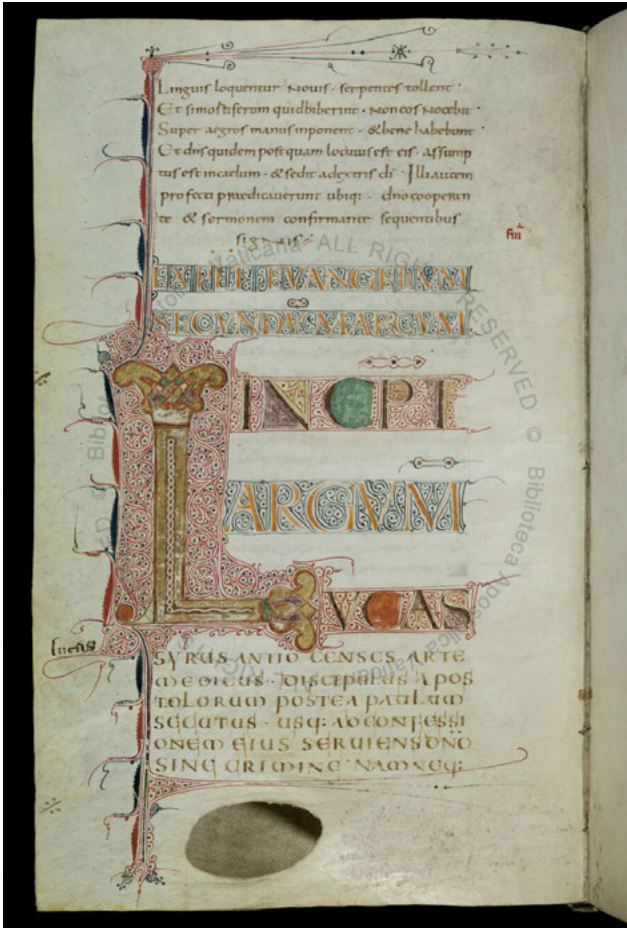 Linguis loquentur Nouis · serpentes tollent ·
Et simortiferum quidbiberint · Noneos Nocebit ·
Super aegros manus inponent · & bene habebunt
Et dns quidem postquam locutus est eis · assump
tus est incaelum · & sedit adextris di · Illi autem
profecti praedicauerunt ubiq: · dno cooperan
te & sermonem confirmante sequentibus
sigNis
EXPLICIT EVANGELIUM
SECUNDU MARCUM
INCPI
ARGUM
LUCAS
lucas
SYRUS ANTIOCENSES ARTE
MEDICUS · DISCIPULUS APOS
TOLORUM POSTEA PAULUM
SECUTUS · USQ: AD CONFESSI
ONEM EIUS SERUIENS DNO
SINE CRIMINE · NAM NEQ:
© Biblioteca Apostolica Vaticana · ALL RIGHTS RESERVED